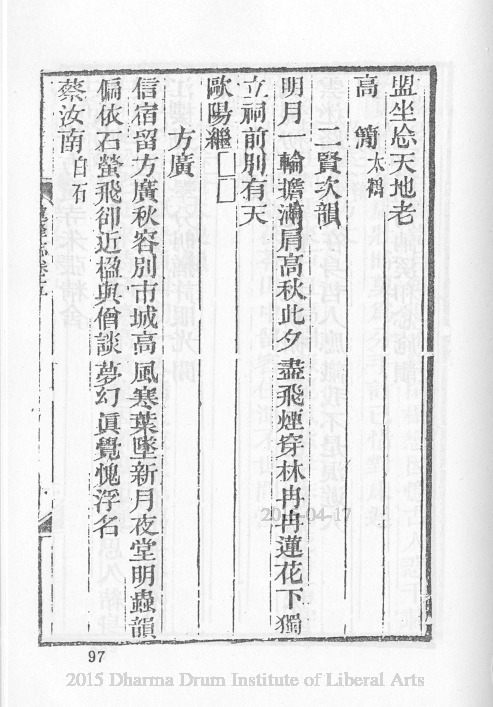 盟坐忩天地老
高簡太鶴
二賢次韻
明月一輪擔滿肩高秋此夕盡飛煙穿林冉冉蓮花下獨
立祠前別有天
歐陽繼□□
方廣
信宿留方廣秋容別市城高風寒葉墜新月夜堂明蟲韻
偏依石螢飛卻近楹與僧談夢幻眞覺愧浮名
蔡汝南白石
志卷之五
97
2015-04-17
2015 Dharma Drum Institute of Liberal Arts